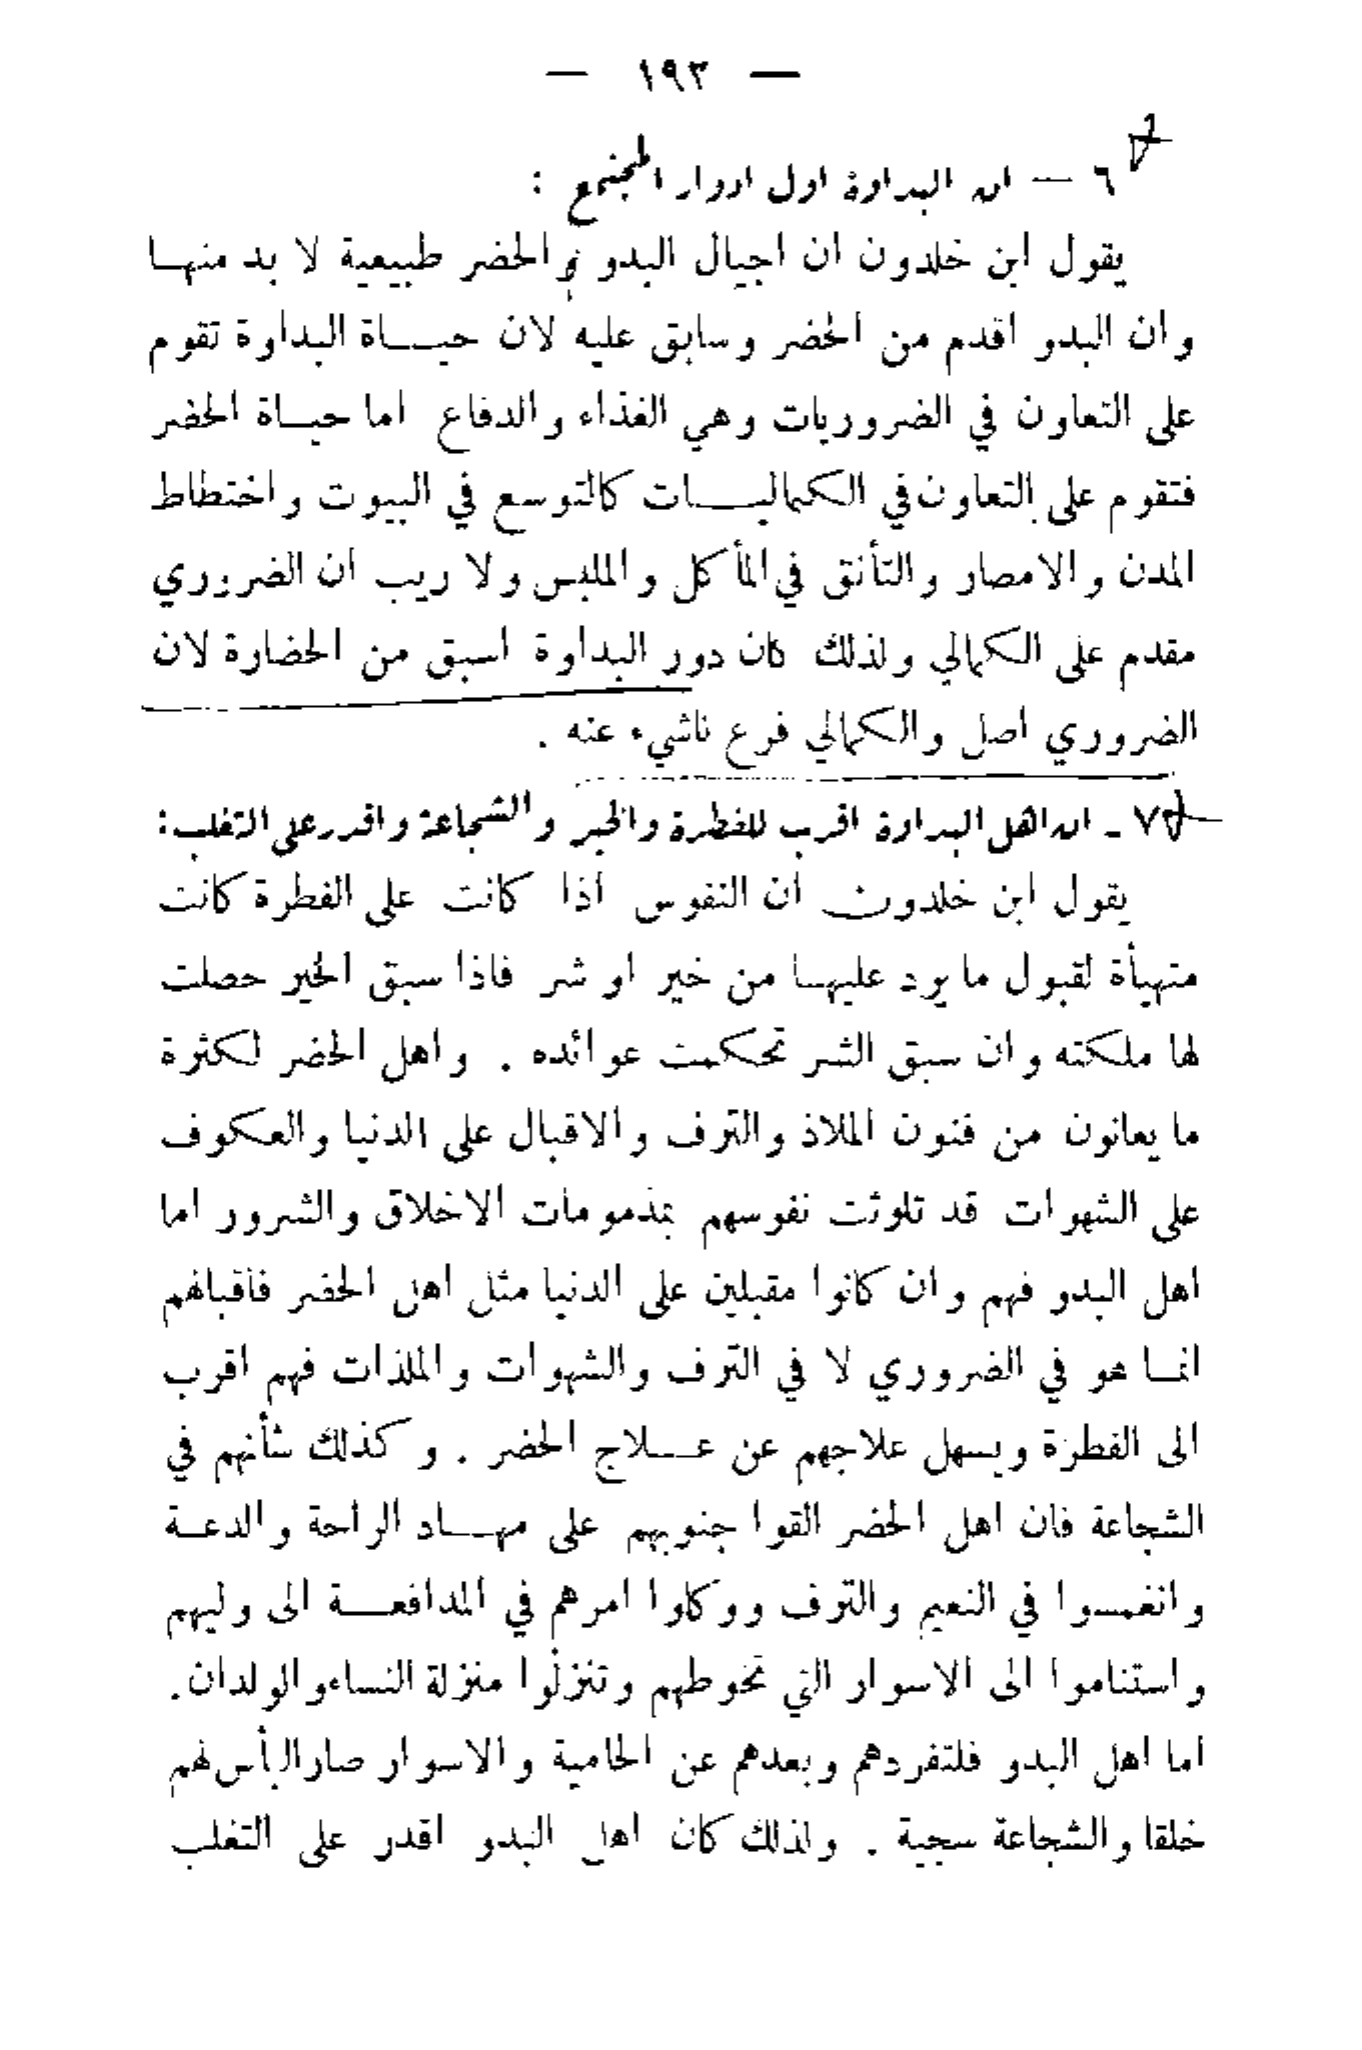 — ١٩٣ —
٦ — ان البداوة اول ادوار المجتمع :
يقول ابن خلدون ان اجيال البدو والحضر طبيعية لا بد منهـا
وان البدو اقدم من الحضر وسابق عليه لان حيـــاة البداوة تقوم
على التعاون في الضروريات وهي الغذاء والدفاع اما حيـاة الحضر
فتقوم على التعاون في الكماليـــات كالتوسع في البيوت واختطاط
المدن والامصار والتأنق في المأكل والملبس ولا ريب ان الضروري
مقدم على الكمالي ولذلك كان دور البداوة اسبق من الحضارة لان
الضروري اصل والكمالي فرع ناشيء عنه .
٧ - ان اهل البداوة اقرب للفطرة والخير والشجاعة واقدر على التغلب :
يقول ابن خلدون ان النفوس اذا كانت على الفطرة كانت
متهيأة لقبول ما يرد عليهـا من خير او شر فاذا سبق الخير حصلت
لها ملكته وان سبق الشر تحكمت عوائده . واهل الحضر لكثرة
ما يعانون من فنون الملاذ والترف والاقبال على الدنيا والعكوف
على الشهوات قد تلوثت نفوسهم بمذمومات الاخلاق والشرور اما
اهل البدو فهم وان كانوا مقبلين على الدنيا مثل اهل الحضر فاقبالهم
انمـا هو في الضروري لا في الترف والشهوات والملذات فهم اقرب
الى الفطرة ويسهل علاجهم عن عـــلاج الحضر . وكذلك شأنهم في
الشجاعة فان اهل الحضر القوا جنوبهم على مهـــاد الراحة والدعـة
وانغمسوا في النعيم والترف ووكلوا امرهم في المدافعـــة الى وليهم
واستناموا الى الاسوار التي تحوطهم وتنزلوا منزلة النساء والولدان.
اما اهل البدو فلتفردهم وبعدهم عن الحامية والاسوار صار البأس لهم
خلقا والشجاعة سجية . ولذلك كان اهل البدو اقدر على التغلب